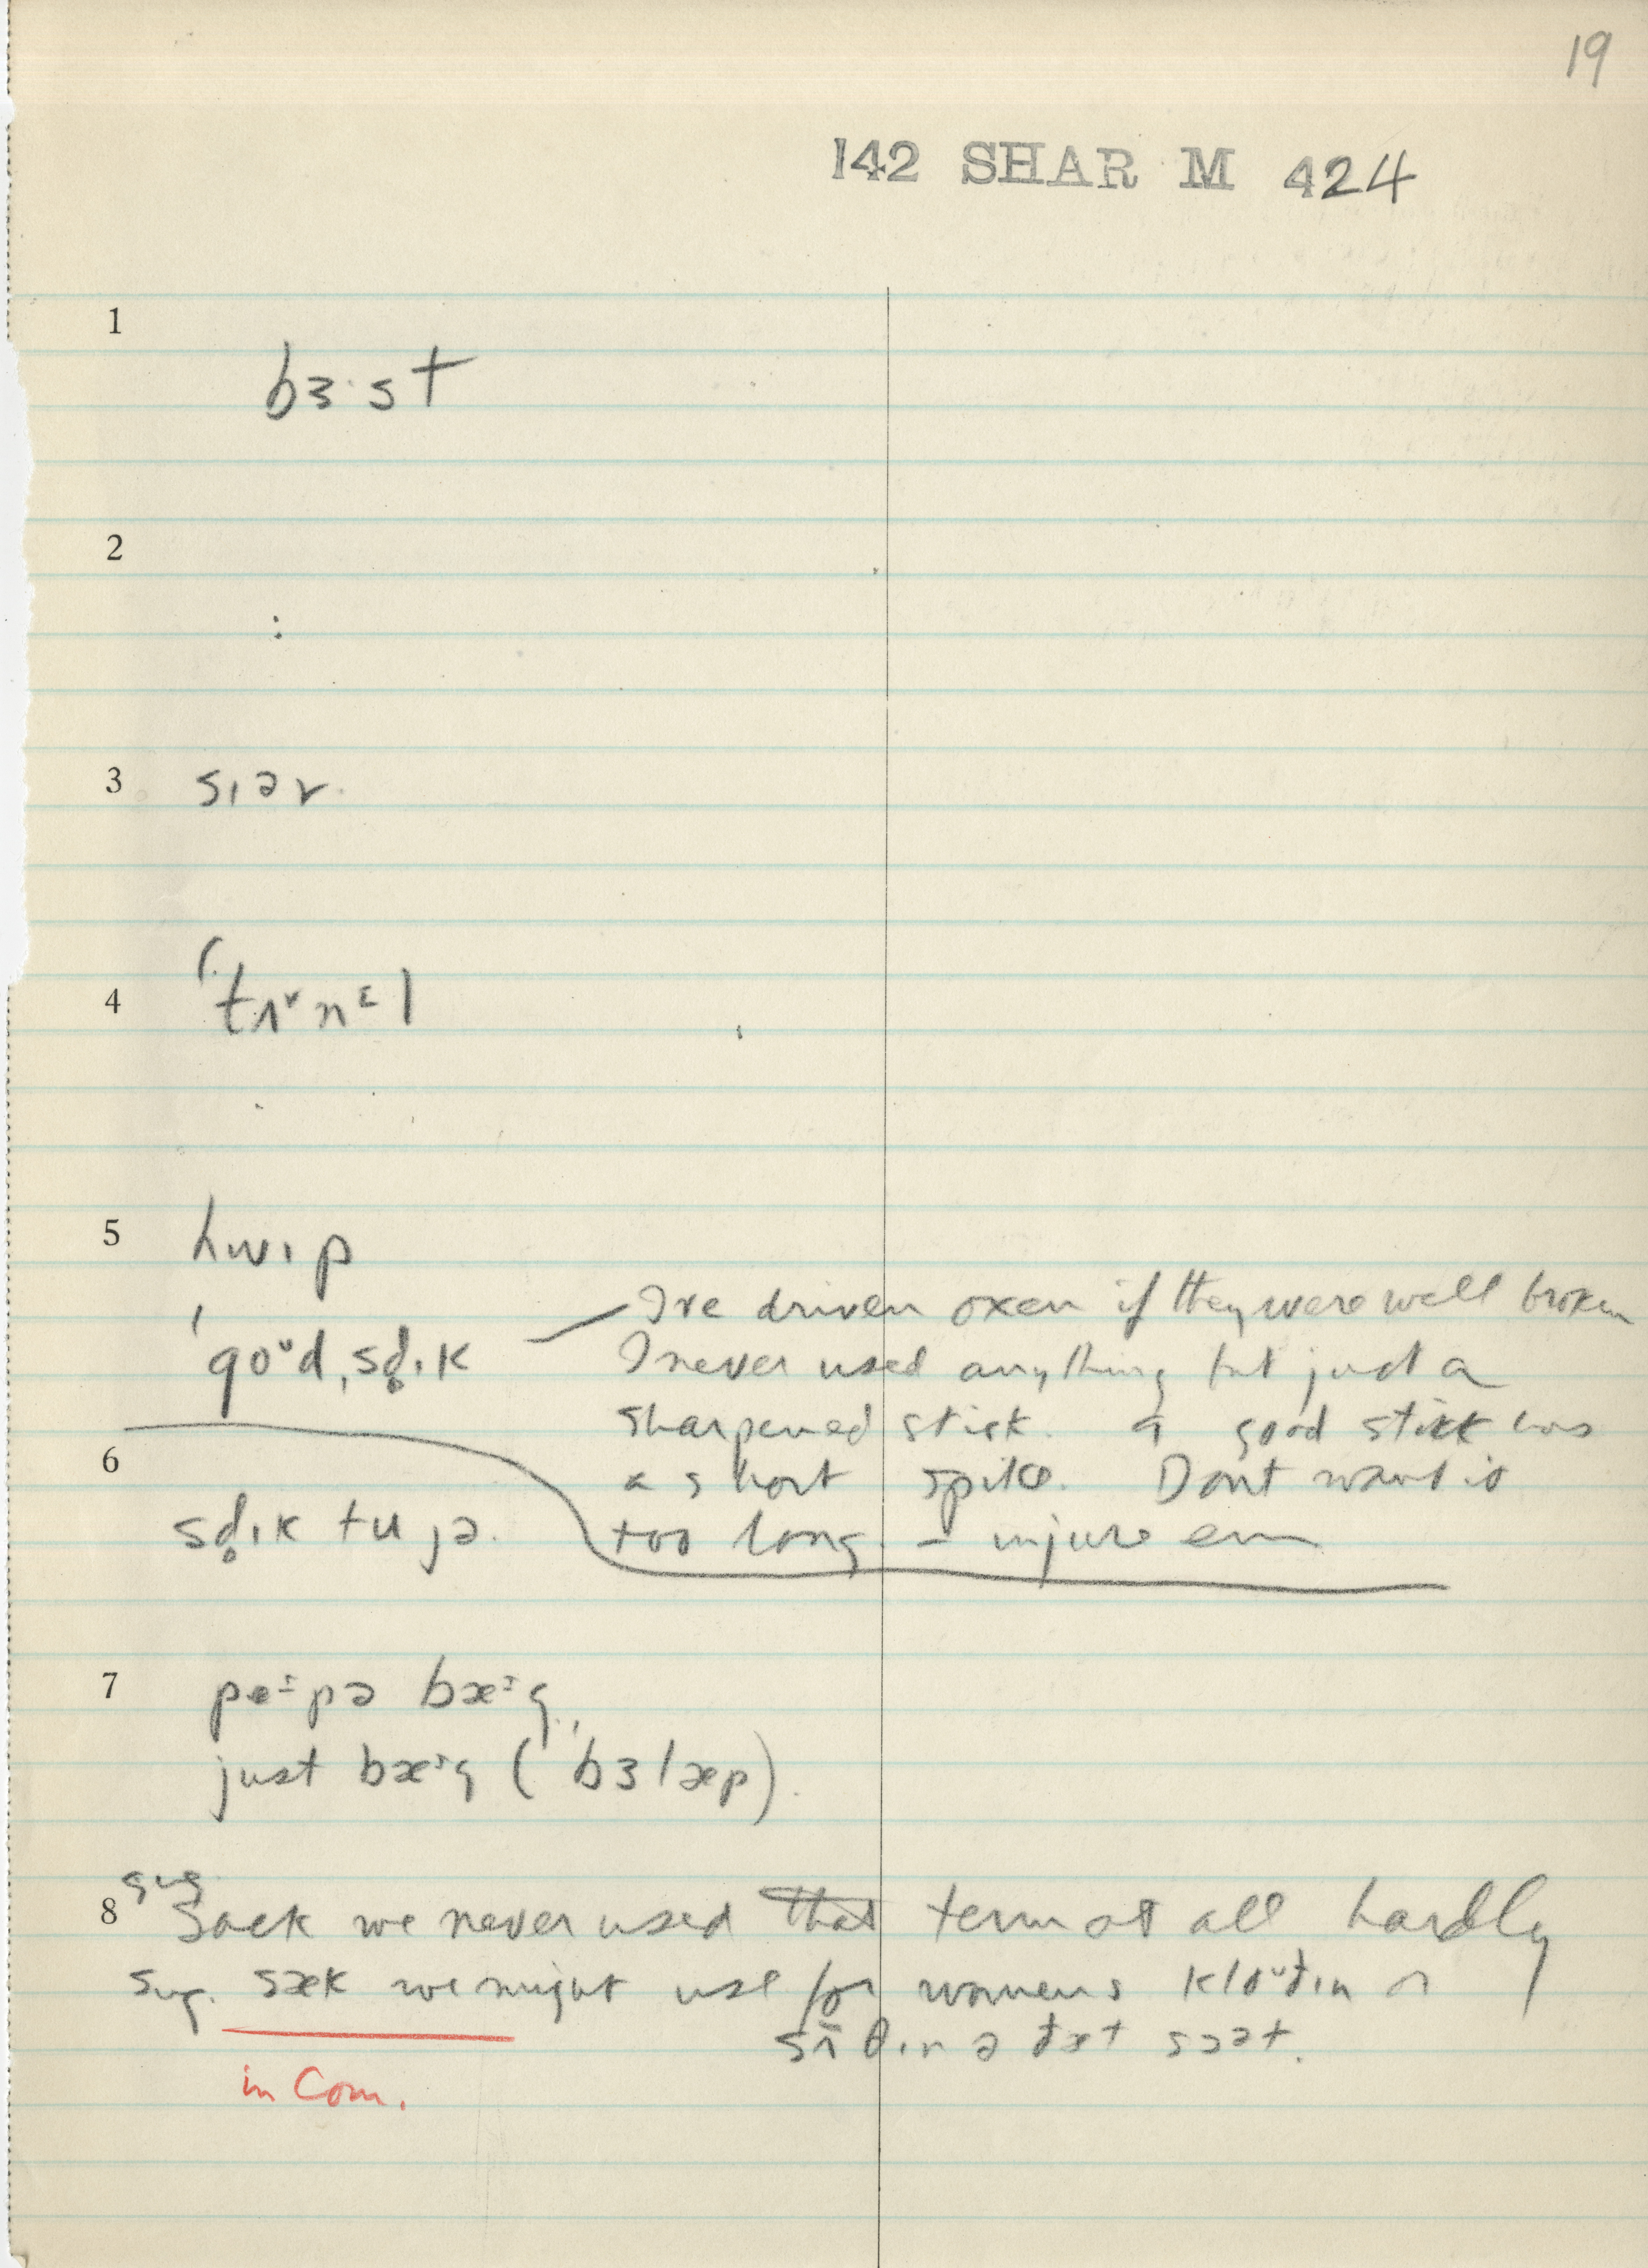 19
142 SHAR M 424
1
bɜ·st
2
:
3
sɪər
4
ˈtʌ˅nᵋl
5
hwɪp
ˈgoᵘdˌsd̥ɪk — I've driven oxen if they were well broken
I never used anything but just a
sharpened stick. a good stick was
a short spike. Dont want it
too long. – injure em
6
sd̥ɪk tu jə.
7
pe·pə bæᶦg
just bæᶦg (ˈbɜlæp).
8
sug
Sack we never used that term at all hardly
sug. sæk we might use for womens kloᵘðɪn
ɪn ə ðæt sɔət.
in Com.